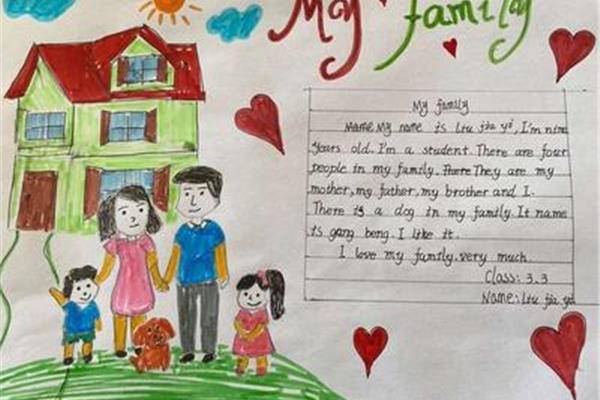 My family
My family
Name My name is Liu jia yi, I'm nine
years old. I'm a student. There are four
people in my family. There They are my
mother, my father, my brother and I.
There is a dog in my family. It name
is gang beng. I like it.
I love my family. very much.
Class: 3.3
Name: Liu jia yi